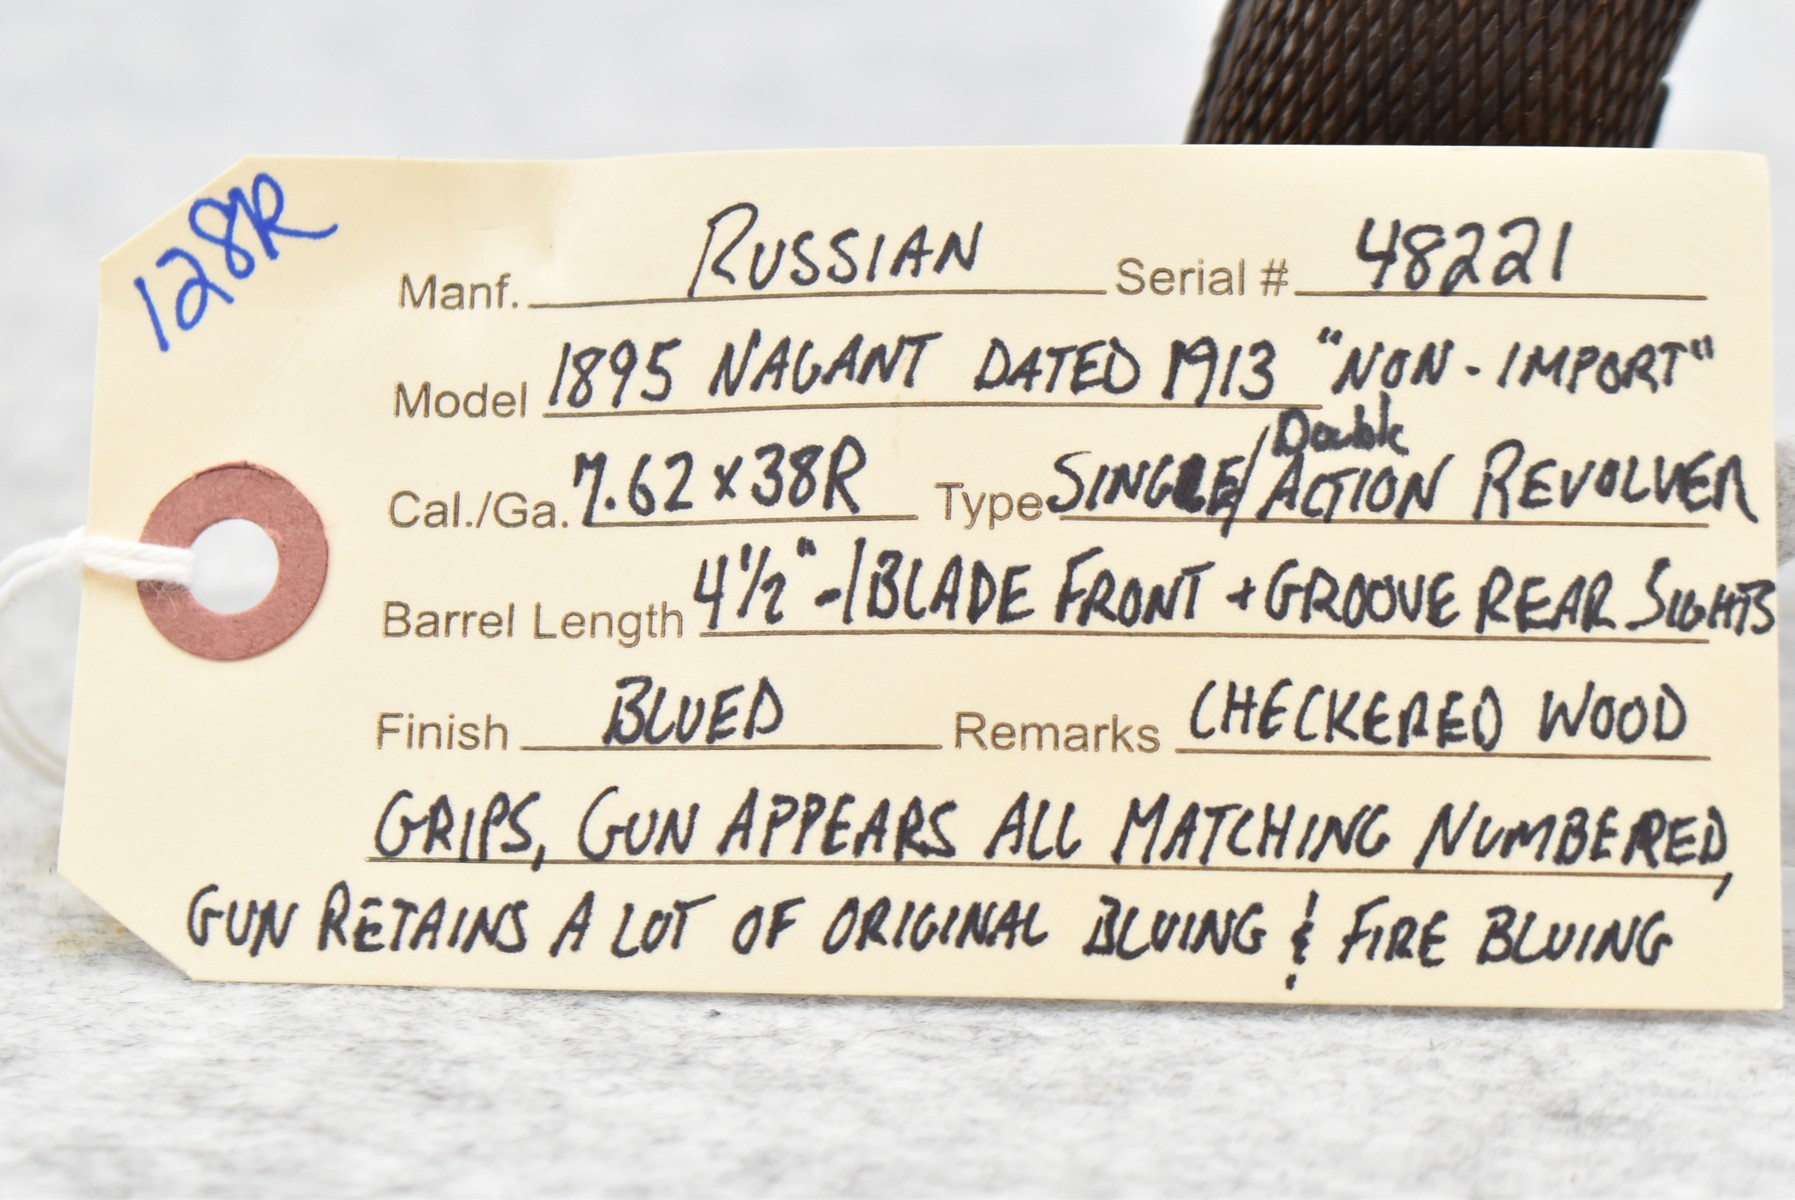 128R
Manf. RUSSIAN Serial # 48221
Model 1895 NAGANT DATED 1913 "NON-IMPORT"
Cal./Ga. 7.62x38R Type SINGLE/Double ACTION REVOLVER
Barrel Length 4½" -/BLADE FRONT + GROOVE REAR SIGHTS
Finish BLUED Remarks CHECKERED WOOD
GRIPS, GUN APPEARS ALL MATCHING NUMBERED,
GUN RETAINS A LOT OF ORIGINAL BLUING & FIRE BLUING